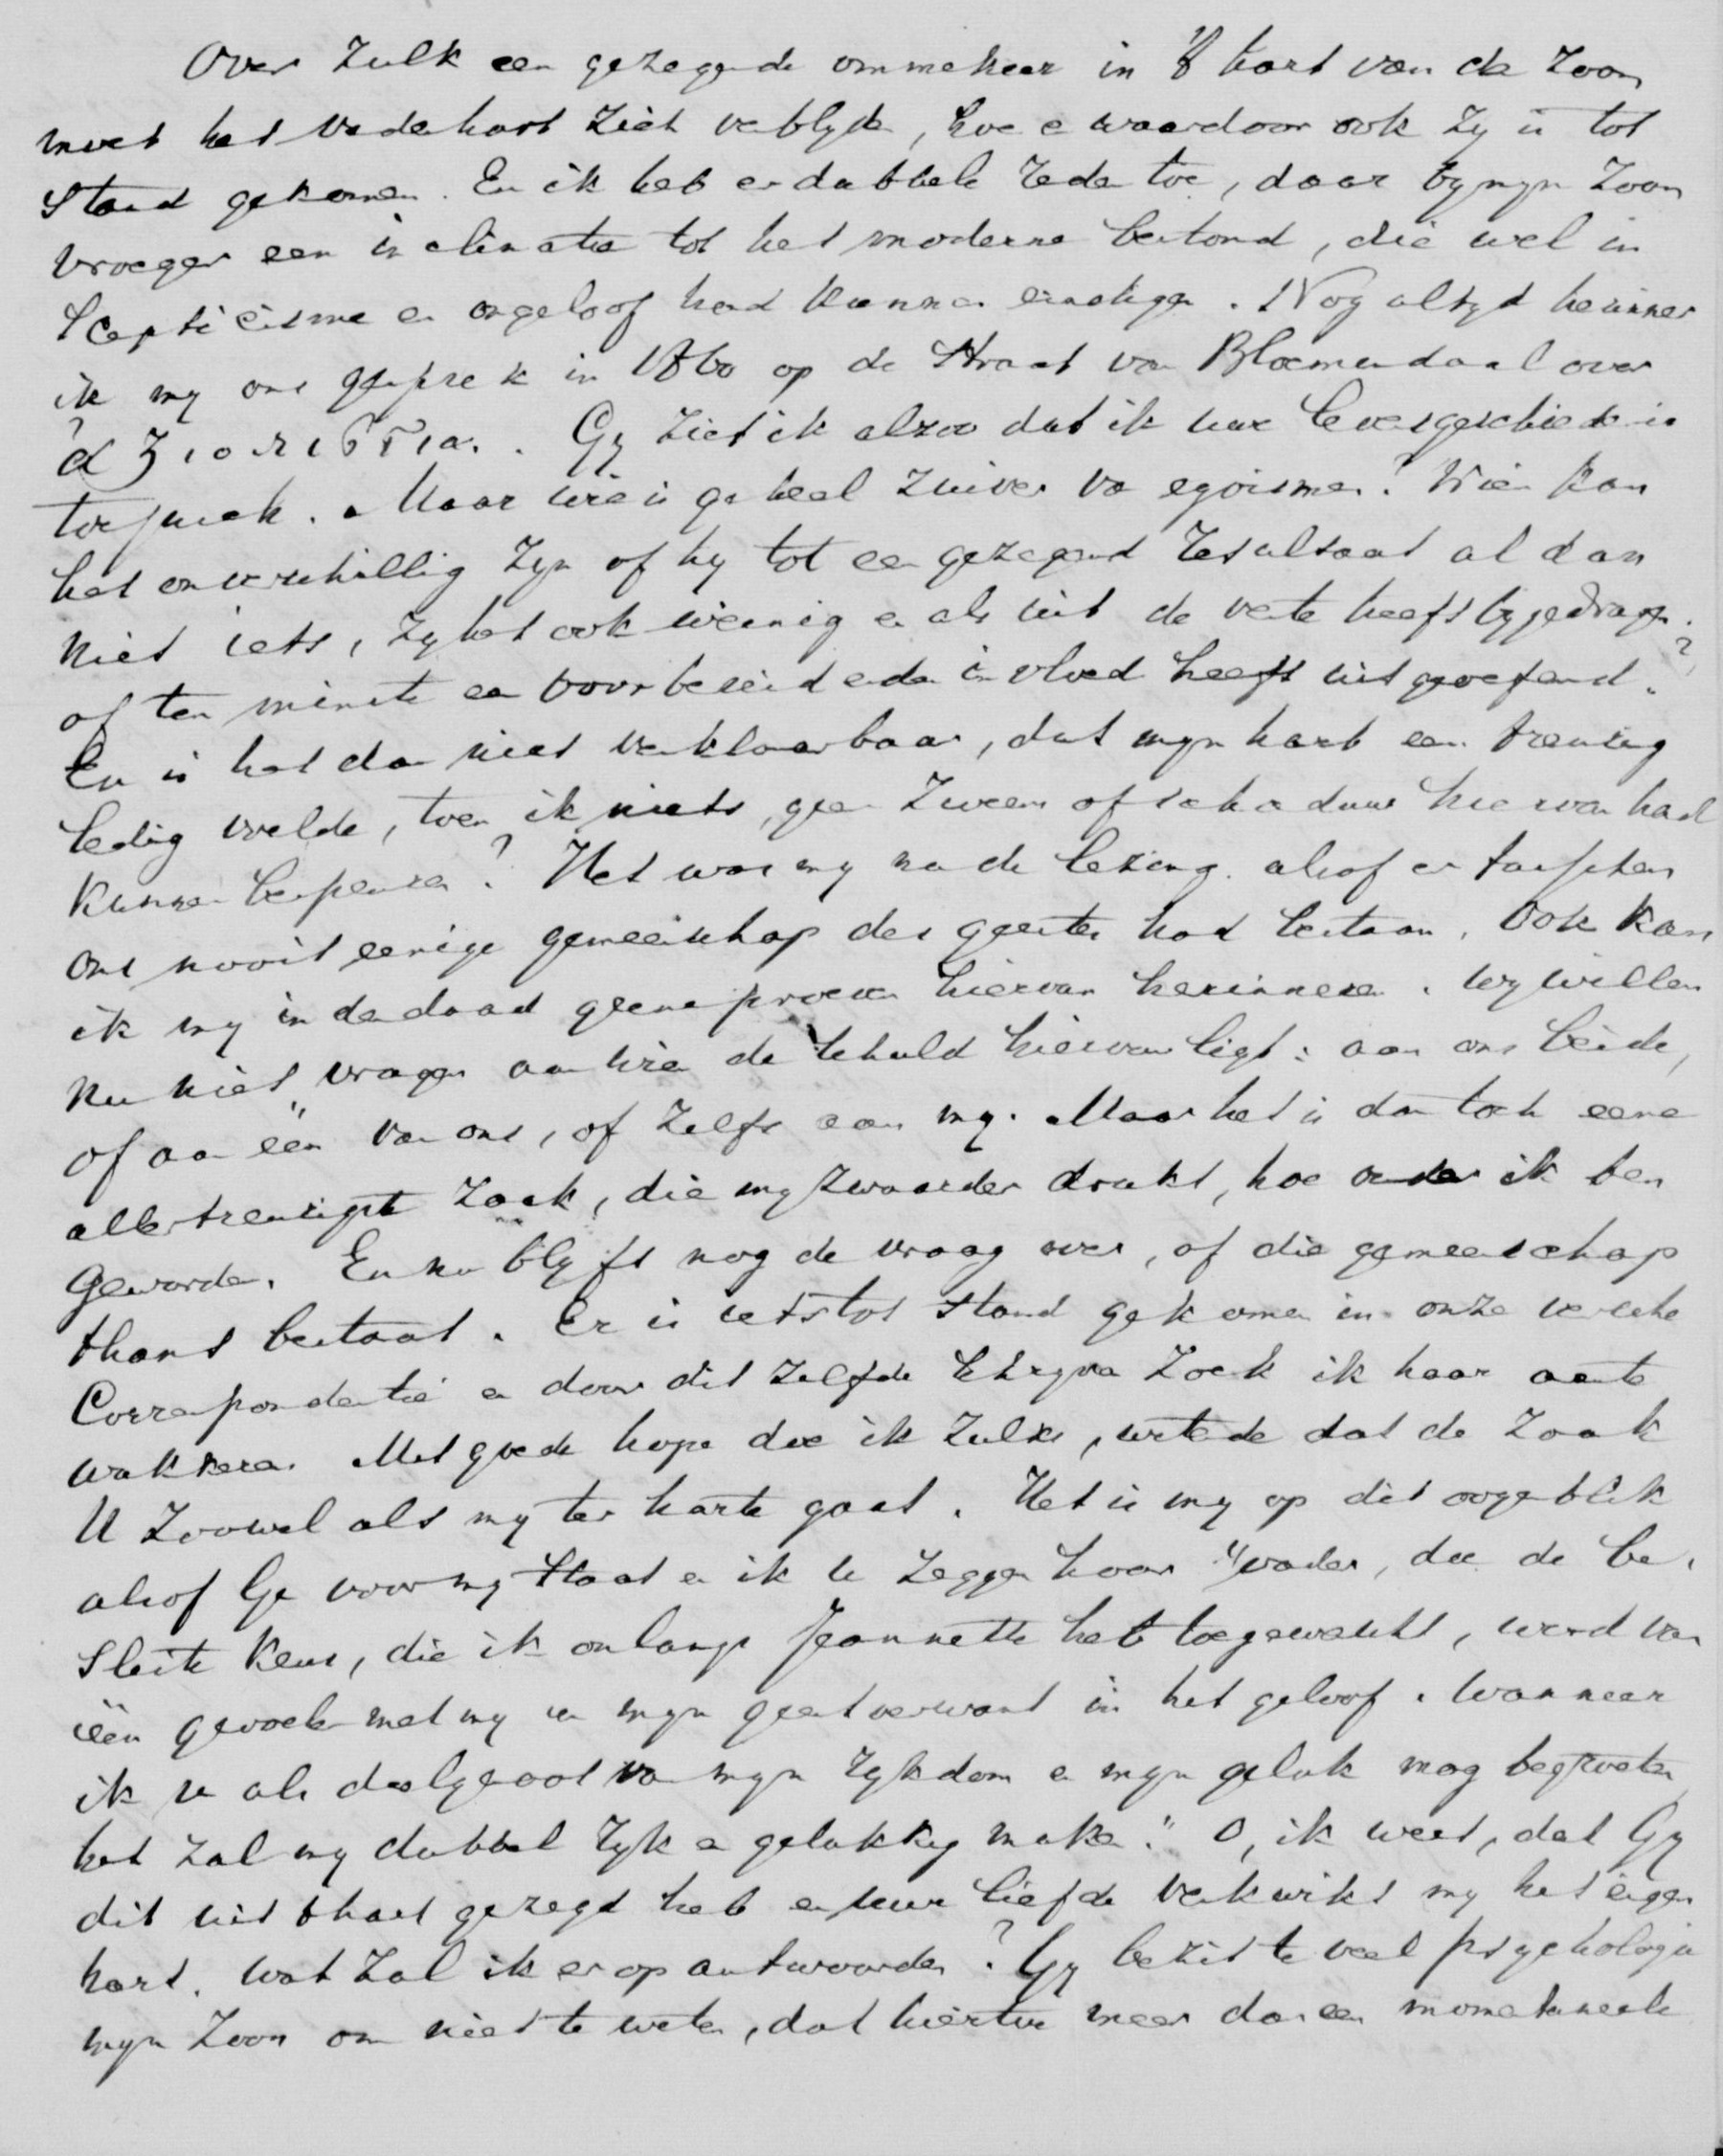 Over zulk een gezegende ommekeer in 't hart van de zoon
moet het vaderhart zich verblyden, hoe en waardoor ook zy is tot
stand gekomen. En ik heb er dubbele reden toe, daar by myn zoon
vroeger een inclinatie tot het moderne bestond, die wel in
scepticisme en ongeloof had kunnen eindigen. Nog altyd herinner
ik my ons gesprek in 1860 op de straat van Bloemendaal over
ἀξιοπιστία. Gy ziet ik alzoo dat ik uwe levensgeschiedenis
toejuich. Maar wie is geheel zuiver van egoisme? Wien kan
het onverschillig zyn of hy tot een gezegend resultaat al dan
niet iets, zy het ook weinig en als uit de verte heeft bygedragen.
of ten minste een voorbereidenden invloed heeft uitgeoefend?
En is het dan niet verklaarbaar, dat myn hart een treurig
ledig voelde, toen ik niets, geen zweem of schaduw hiervan had
kunnen bespeuren? Het was my na de lezing alsof er tusschen
ons nooit eenige gemeenschap des geestes had bestaan. Ook kan
ik my inderdaad geene proeven hiervan herinneren. Wy willen
nu niet vragen aan wie de schuld hiervan ligt: aan ons beide,
of aan één van ons, of zelfs aan my. Maar het is dan toch eene
allertreurigste zaak, die my zwaarder drukt, hoe ouder ik ben
geworden. En nu blyft nog de vraag over, of die gemeenschap
thans bestaat. Er is iets tot stand gekomen in onze versche
Correspondentie en door dit zelfde schryven zoek ik haar aan te
wakkeren. Met goede hope doe ik zulks, wetende dat de zaak
U zoowel als my ter harte gaat. Het is my op dit oogenblik
alsof Ge voor my staat en ik U zeggen hoor "vader, doe de be-
sliste keus, die ik onlangs Jeannette heb toegewenscht, word van
één gevoelen met my en myn geestverwant in het geloof. Wanneer
ik u als deelgenoot van myn rykdom en myn geluk mag begroeten
het zal my dubbel ryk en gelukkig maken." O, ik weet, dat Gy
dit uit 't hart gezegd hebt en uwe liefde verkwikt my het eigen
hart. Wat zal ik er op antwoorden? Gy bezit te veel psychologie
myn zoon om niet te weten, dat hiertoe meer dan een momentaneele